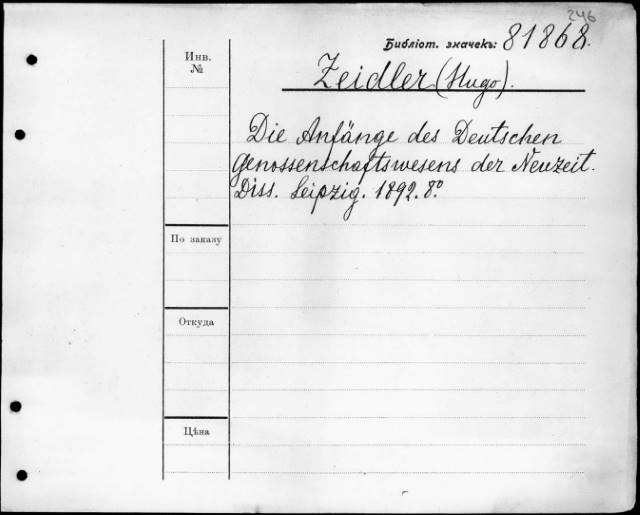 246
Библіот. значекъ: 81868.
Инв.
№
Zeidler (Hugo).
Die Anfänge des Deutschen
Genossenschaftswesens der Neuzeit.
Diss. Leipzig. 1892. 8º.
По заказу
Откуда
Цѣна